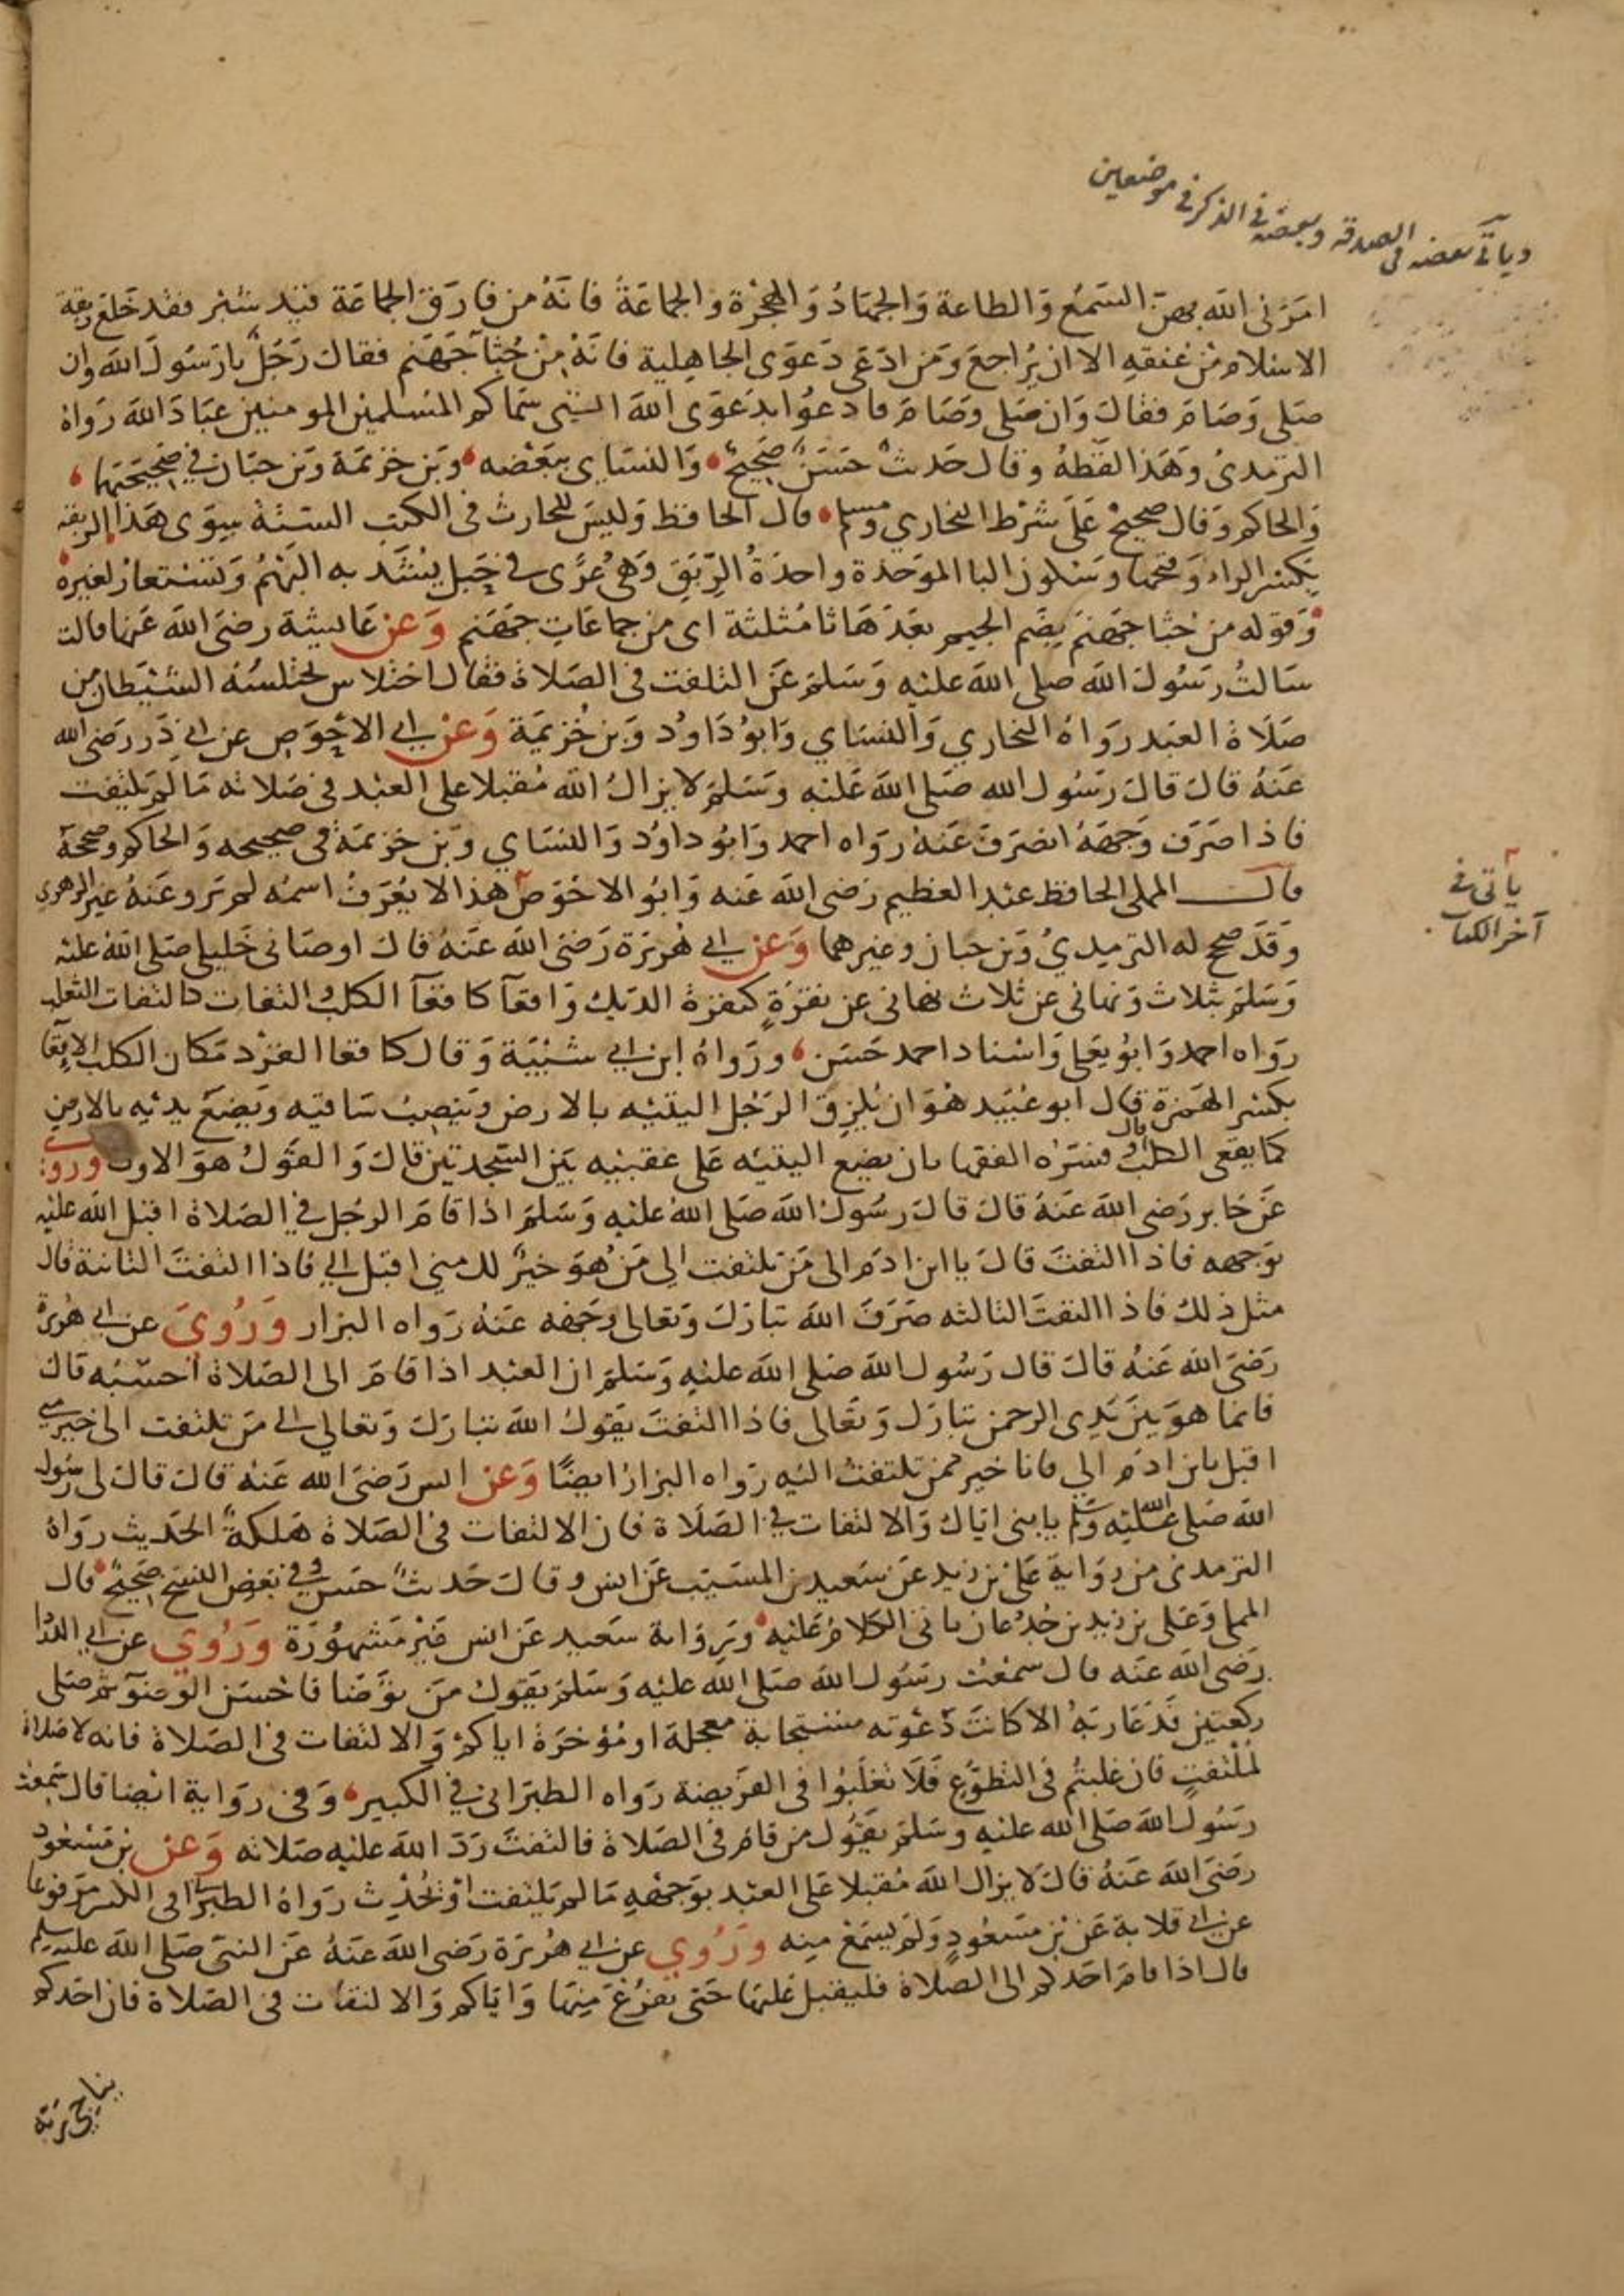 وياتي بعضه في الصدقة وبعضه في الذكر في موضعين
امرني الله بهن السَّمع وَالطاعة وَالجهَادُ وَالهجْرَة وَالجمَاعَةُ فانَهُ من فارَقَ الجماعَة قيد شبْر فقد خَلعَ ربقة
الاسلام من عنقهِ الا ان يُراجعَ وَمَن ادّعَى دَعوَى الجاهِلية فانَهُ مِنْ جُثَآ جَهَنم فقال رَجُلٌ يا رَسُولَ الله وان
صَلى وَصَامَ فقالَ وَان صَلى وَصَامَ فادعوُا بدَعوَى الله التي سَماكم المُسلمين المومنين عبَادَ الله رَوَاهُ
الترمديُ وَهَذا لفظهُ وقال حَديثٌ حَسَنٌ صَحيحٌ وَالنسَاي ببَعْضه وَبن خزيمَة وَبن حبَان في صَحيحَيهما
وَالحاكم وَقال صحيحٌ عَلَى شرْط البخاري ومسلم قال الحافظ وَليسَ للحارث في الكتب الستة سِوَى هَذا الربقة
بكسْر الراء وَفتحها وَسَكون البا الموَحدة واحدَةُ الرِّبَق وَهي عُرًى في حَبل يُشَد به البَهْمُ وَتسْتعار لغيره
وَقوله من جُثا جَهَنم بضَم الجيم بَعدَهَا ثا مُثلثة اى من جمَاعَاتِ جَهَنم وَعن عَايشة رضيَ الله عَنها قالت
سَالتُ رَسُول الله صلى الله عليْه وَسَلمَ عَن التلفت في الصَلاة فقال اختلاس يختلسُهُ الشيْطان من
صَلَاة العَبد رَوَاهُ البخاري وَالنسَاي وَابوُ دَاوُد وَبن خُزيمَة وَعَنْ ابي الاحْوَص عن ابي ذَر رَضي الله
عَنهُ قالَ قالَ رَسُول الله صَلى الله عَليْه وَسَلمَ لا يزالُ الله مُقبلا على العَبْد في صَلاته مَا لم يَلتفت
فاذا صَرَف وَجهَهُ انصَرَفَ عَنهُ رَوَاه احمد وَابُو داوُد وَالنسَاي وَبن خزيمَة في صحيحه وَالحاكم وصححهُ
قال المملى الحافظ عبْد العَظيم رَضي الله عَنه وَابُو الاحْوَص هذا لا يُعْرَفُ اسمُه لم يَرو عَنهُ غير الزهري
وَقدْ صَحح له الترميديُ وَبن حبان وغيرهما وَعَن ابي هُرَيرَة رَضيَ الله عَنهُ قال اوصَانى خَليلى صَلى الله عليه
وَسَلمَ بثلاث وَنهاني عن ثلاث نهاني عن نقرَةٍ كنقرَة الديك وَاقعآ كاقعَآ الكلْبِ والتفات كالتفات الثعلب
رَوَاه احمد وَابُو يعَلى وَاسْناد احمد حَسَن وَرَوَاهُ ابن ابي شَيْبَة وَقال كاقعا القرد مَكان الكلب الاِقعَا
بكسْر الهَمزة قال ابو عُبَيد هُوَ ان يُلزِقَ الرَجُل اليتيْه بالارض وَينصِبُ سَاقيه وَيضَعَ يديْه بالارض
كما يقعى الكلبُ قال وفسَرَه الفقها بان يضع اليتيْه عَلى عَقبيْه بَيْن السَّجدتَين قال وَالقَولُ هوَ الاول وَرُوِيَ
عَن جَابر رَضيَ الله عَنهُ قالَ قالَ رَسُول الله صَلى اللهُ عليْه وَسَلمَ اذا قامَ الرجُل في الصَلاة اقبَل الله عليْه
بوَجهه فاذا التفتَ قالَ يا ابن ادَم الى مَن تلتفت الى مَن هوَ خيْرٌ لك مني اقبَل اليَّ فاذا التفتَ الثانية قال
مثل ذلك فاذا التفتَ الثالثه صَرَفَ الله تبارَكَ وَتعالى وَجهَه عَنهُ رَوَاه البزار وَرُوِيَ عن ابي هُرَيرة
رَضيَ الله عَنهُ قالَ قال رَسُول الله صَلى الله عليْه وَسَلمَ ان العَبْد اذا قامَ الى الصَلاة احسَبُه قال
فانما هوَ بَينَ يَدى الرحمن تبارَك وَتعَالى فاذا التفتَ يقوُلُ الله تبارَكَ وَتعالى الى مَن تلتفت الى خيْر مني
اقبل يا بن ادَم الي فانا خير ممن تلتفتُ اليْه رَوَاه البزارُ ايضًا وَعَن انس رَضيَ الله عَنهُ قالَ قالَ لى رَسُول
الله صَلى الله عليْه وَسَلم يا بنى اياك وَالالتفات في الصَلاة فان الالتفات في الصَلاة هَلكةٌ الحَديث رَوَاهُ
الترمدىُ من رِوَاية عَلى بْن زيد عَن سَعيد بن المسَيّب عَن انس وقالَ حَديثٌ حسَن وفي بَعْض النسَخ صَحيحٌ قال
المملى وَعَلى بن زيد بن جُدعان ياتى الكلامُ عَليْه وَرِوَاية سَعيد عَن انس غيْر مَشهوُرَة وَرُوِيَ عن ابي الدردا
رَضيَ الله عَنه قال سَمعْتُ رسَوُل الله صَلى الله عليْه وَسَلمَ يقوُلُ مَن توَضا فاحْسَن الوضوءَ ثم صَلى
ركعتين فدَعَا رَبهُ الا كانتَ دَعْوَته مستجابة معجلة او مُؤخرَة اياكم وَالالتفات في الصَلاة فانه لا صَلاة
لمُلْتفتٍ فان غلبتم في التطوّع فَلَا تغلَبُوا فى الفرَيضة رَواه الطبرَانى في الكبير وَفي رِوَاية ايْضا قال سَمعْتُ
رَسُولَ الله صَلى الله عليْه وسَلمَ يقوُل من قامَ في الصَلاة فالتفتَ رَدَ الله عليْه صَلاته وَعَن بن مَسْعُود
رَضيَ الله عَنهُ قالَ لا يزال الله مُقبلا عَلى العَبْد بوَجْههِ مَا لم يَلتفت اوْ يُحْدِث رَوَاهُ الطبراني في الكبير مَوقوفا
عن ابي قلابة عَن بْن مَسْعُودٍ وَلَم يسمَعْ مِنه وَرُوِي عن ابي هُرَيرَة رَضيَ الله عَنهُ عَنِ النبىّ صَلى الله عليه وسلم
قال اذا قامَ احَدكم الى الصَلاة فليقبل عَليْها حَتى يفرُغ مِنهَا وَاياكم وَالالتفات في الصَلاة فان احَدكم
يناجي رَبَّه
يأتي في
آخر الكتاب